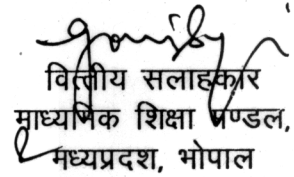 वित्तीय सलाहकार
माध्यमिक शिक्षा मण्डल,
मध्यप्रदश, भोपाल